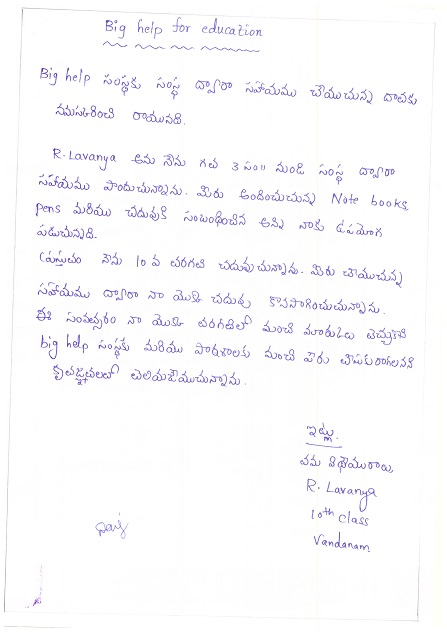 Big help for education
Big help సంస్థకు సంస్థ ద్వారా సహాయము చేయుచున్న దాతకు
నమస్కరించి రాయునది.
R. Lavanya అను నేను గత 3 సం॥ నుండి సంస్థ ద్వారా
సహాయము పొందుచున్నాను. మీరు అందించుచున్న Note books,
pens మరియు చదువుకి సంబంధించిన అన్ని నాకు ఉపయోగ
పడుచున్నది.
ప్రస్తుతం నేను 10 వ తరగతి చదువుచున్నాను. మీరు చేయుచున్న
సహాయము ద్వారా నా యొక్క చదువు కొనసాగించుచున్నాను.
ఈ సంవత్సరం నా యొక్క తరగతిలో మంచి మార్కులు తెచ్చుకొని
big help సంస్థకు మరియు పాఠశాలకు మంచి పేరు
కృతజ్ఞతలతో తెలియజేయుచున్నాను.
ఇట్లు,
తమ విధేయురాలు,
R. Lavanya
10th class
Vandanam